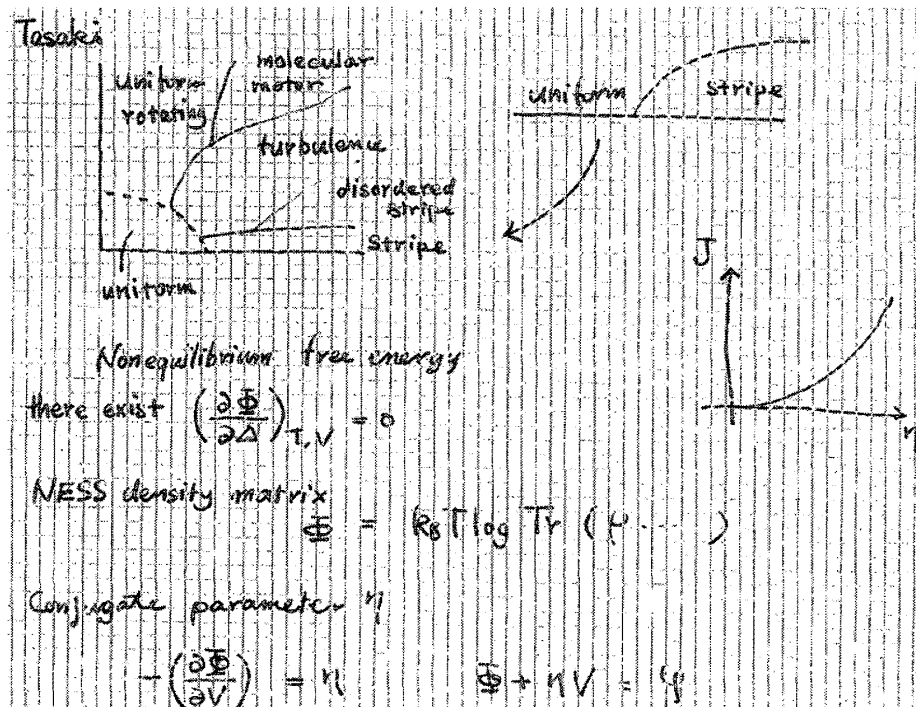 Tasaki
uniform
rotating
molecular
motor
turbulence
disordered
stripe
Stripe
uniform
uniform stripe
J
η
Nonequilibrium free energy
there exist (∂Φ/∂Δ)T,V = 0
NESS density matrix
Φ = kBT log Tr (ρ ····· )
Conjugate parameter η
-(∂Φ/∂V) = η Φ + ηV =